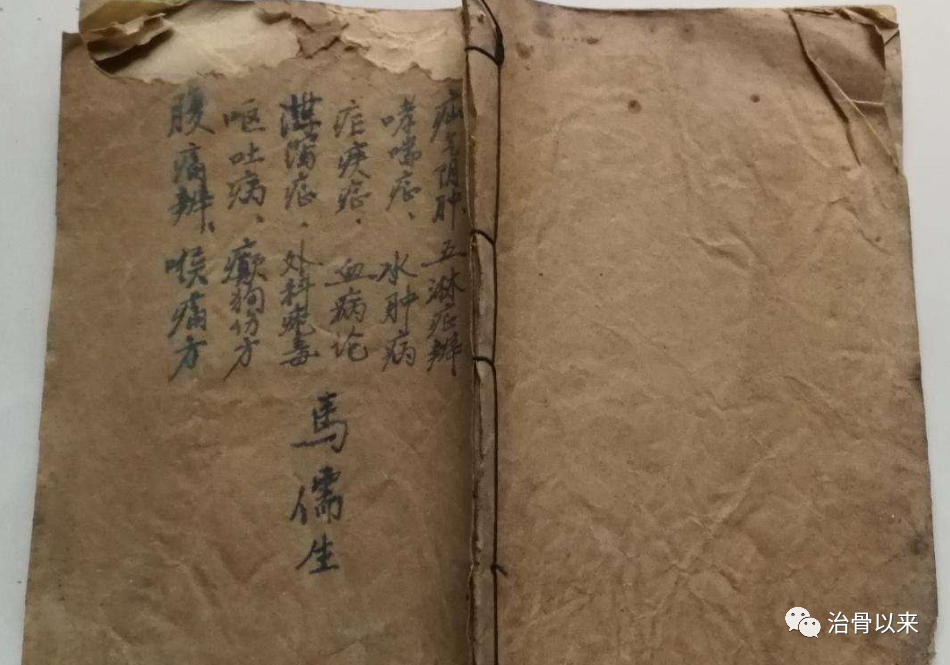 疝气阴肿、五淋症辨
哮喘症、水肿病
疟疾症、血病论
泻症、外科疮毒
呕吐病、癫狗伤方
腹痛辨、喉痛方
馬儒生
治骨以来